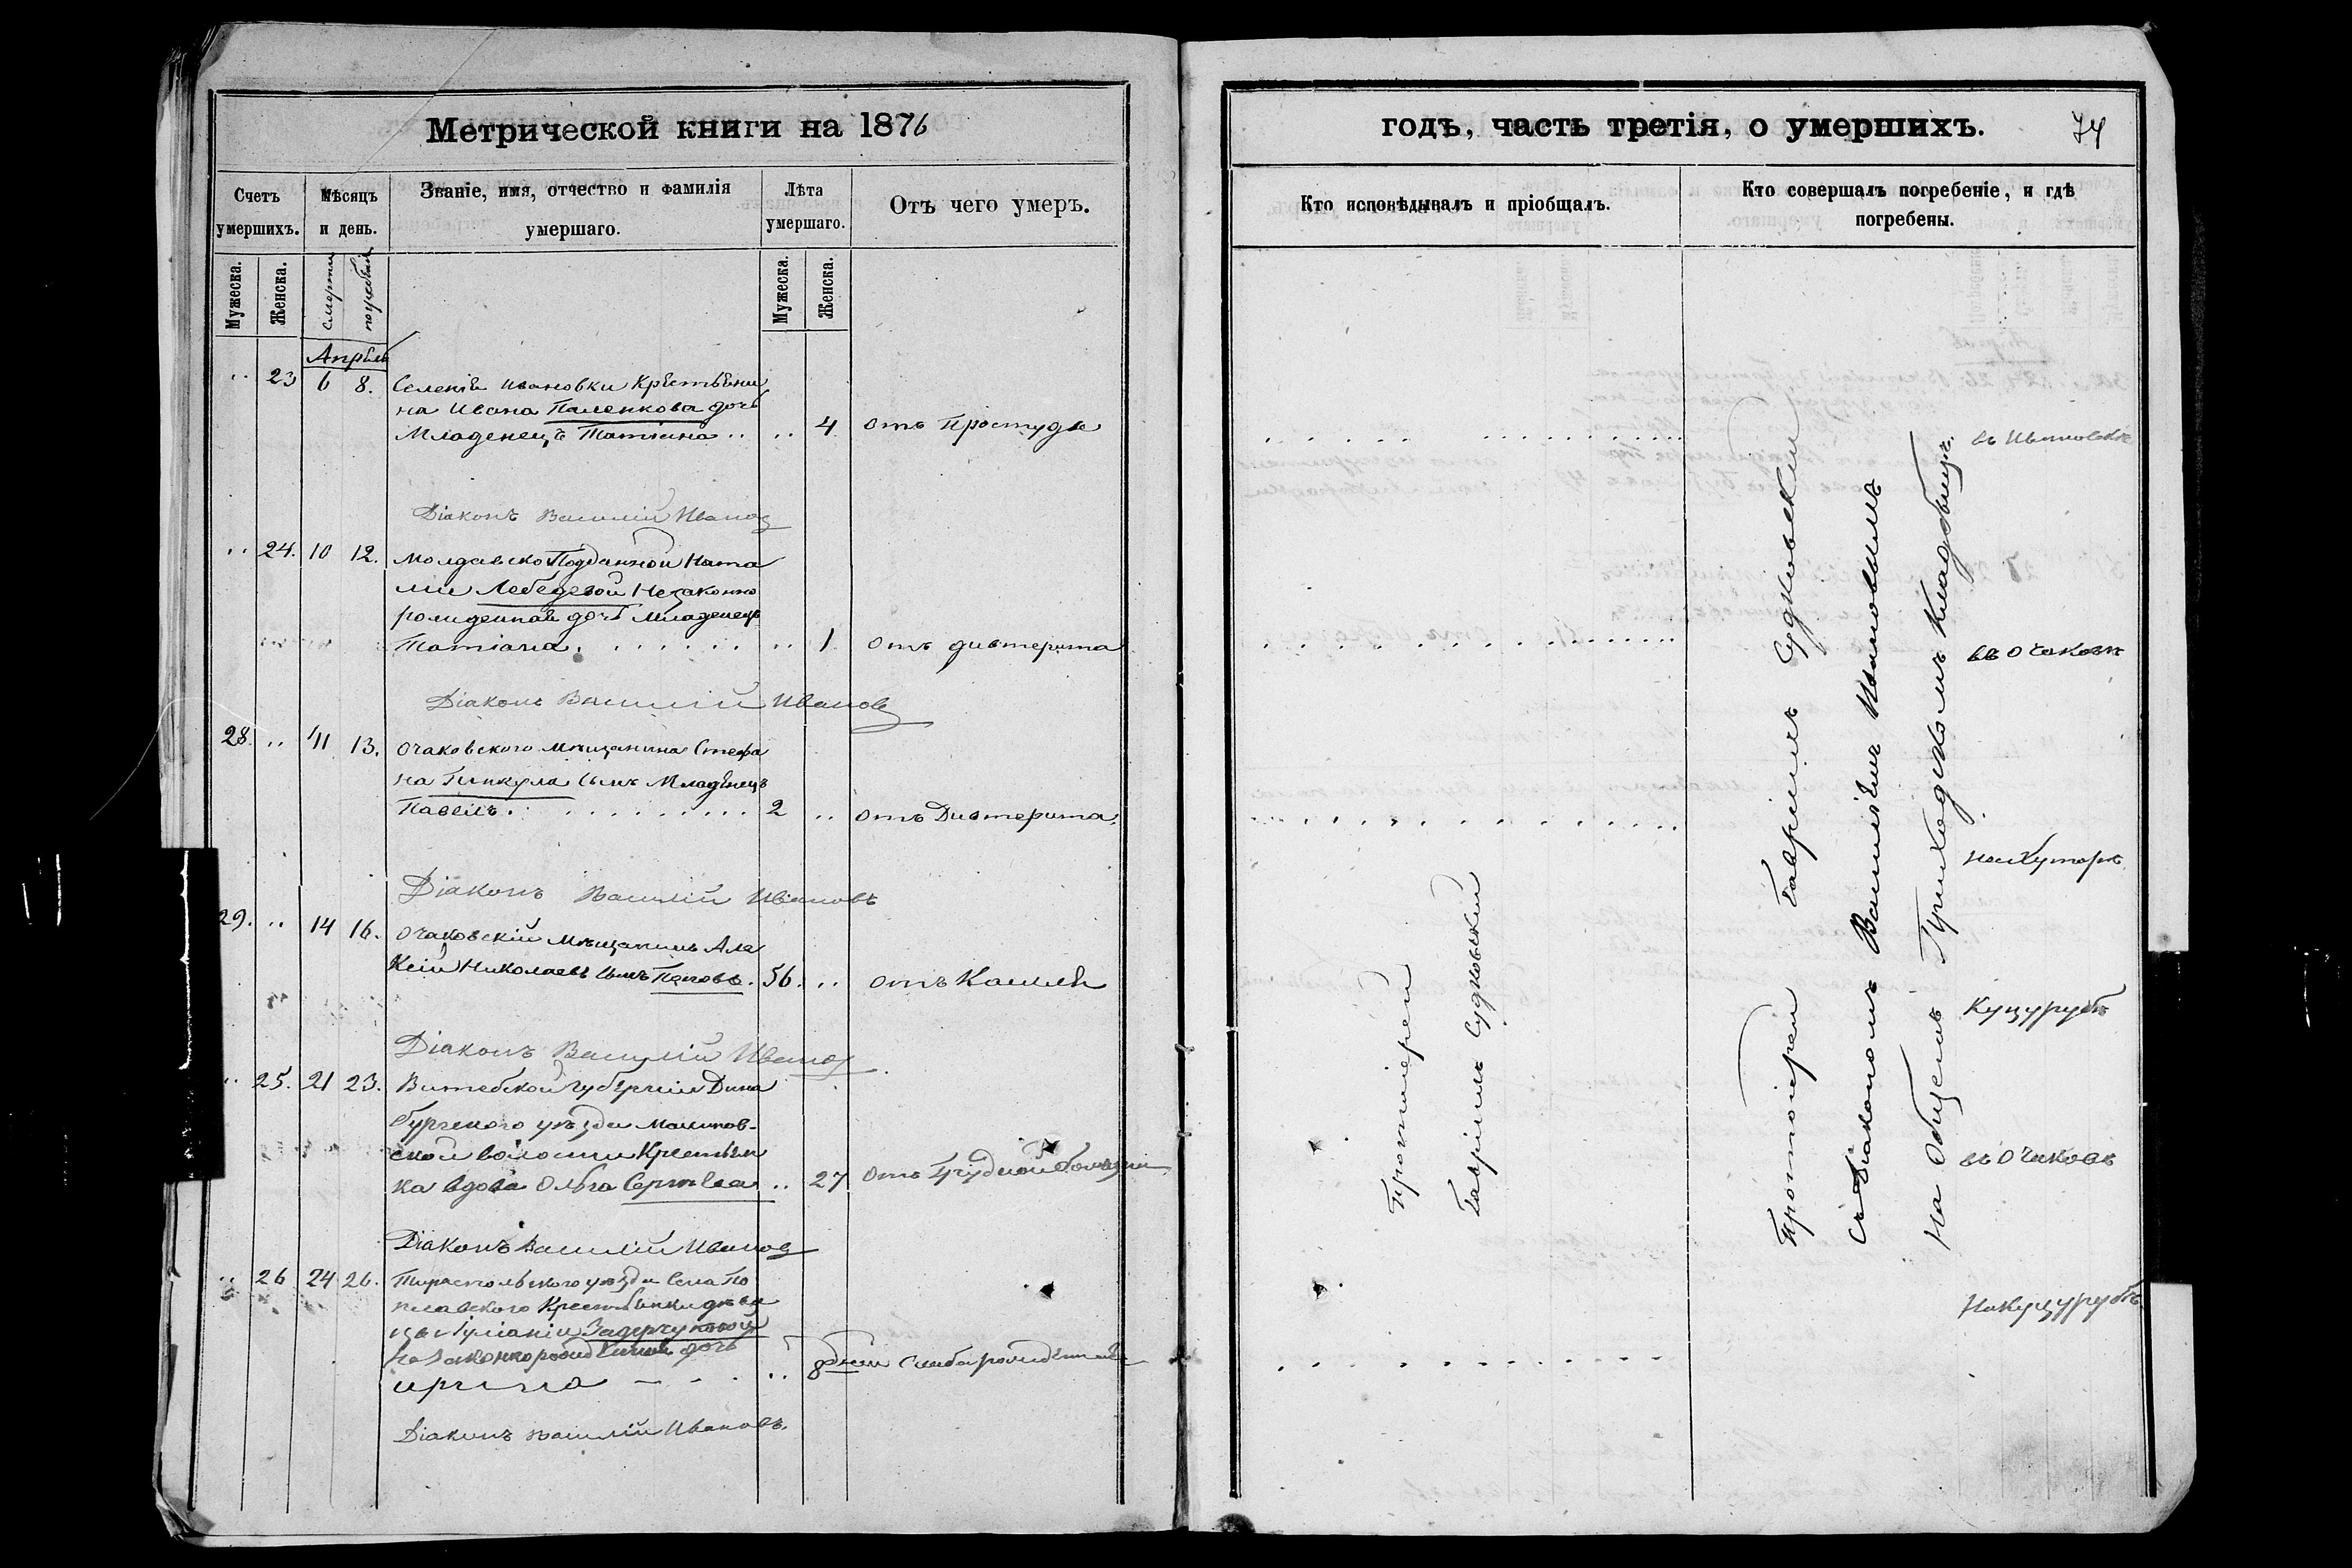 Метрической книги на 1876
Счетъ умершихъ.
Мѣсяцъ и день.
Званіе, имя, отчество и фамилія умершаго.
Лѣта умершаго.
Отъ чего умеръ.
Мужеска.
Женска.
смерти
погребенія
Мужеска.
Женска.
Апрѣль
23 6 8. Селенія Ивановки Крестьяни
на Ивана Паленкова дочь
Младенецъ Татіана 4 отъ Простуды
Діаконъ Василій Ивановъ
24. 10 12. Молдавско Подданной Ната
ліи Лебедевой Незаконно
рожденная дочь Младенецъ
Татіана 1 отъ дивтерита
Діаконъ Василій Ивановъ
28. 11 13. Очаковского Мѣщанина Стефа
на сынъ Младенецъ
Павелъ 2 отъ Дивтерита.
Діаконъ Василій Ивановъ
29. 14 16. Очаковскій Мѣщанинъ Але
ксій Николаевъ сынъ Поповъ. 56. отъ Кашля
Діаконъ Василій Ивановъ
25. 21 23. Витебской губерніи Дина
бургского уѣзда Малинов-
ской волости Крестьян
ка вдова Ольга Сергѣева 27 отъ Грудной болезни
Діаконъ Василій Ивановъ
26 24 26. Тираспольского уѣзда Села По
Крестьянки дѣви
цы Іуліаніи
Незаконнорожденная дочь
Ирина 8 дней Слабарожденная
Діаконъ Василій Ивановъ.
годъ, часть третія, о умершихъ.
74
Кто исповѣдывалъ и пріобщалъ.
Кто совершалъ погребеніе, и гдѣ погребены.
Протоіерей
Гавріилъ Судковскій
Протоіерей Гавріилъ Судковскій
съ Діакономъ Василіемъ Ивановымъ
На Общемъ Приходскомъ Кладбищѣ.
въ Ивановкѣ
въ Очаковѣ
на Хуторѣ
Куцурубѣ
въ Очаковѣ
На Куцурубѣ